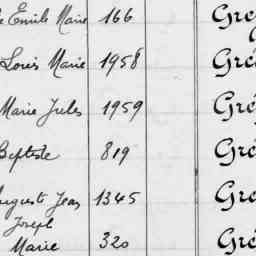 Emile Marie 166 Gré
Loris Marie 1958 Gré
Marie Jules 1959 Gré
Baptiste 819 Gré
Auguste Jean 1345 Gre
Joseph
Marie 320 Gré